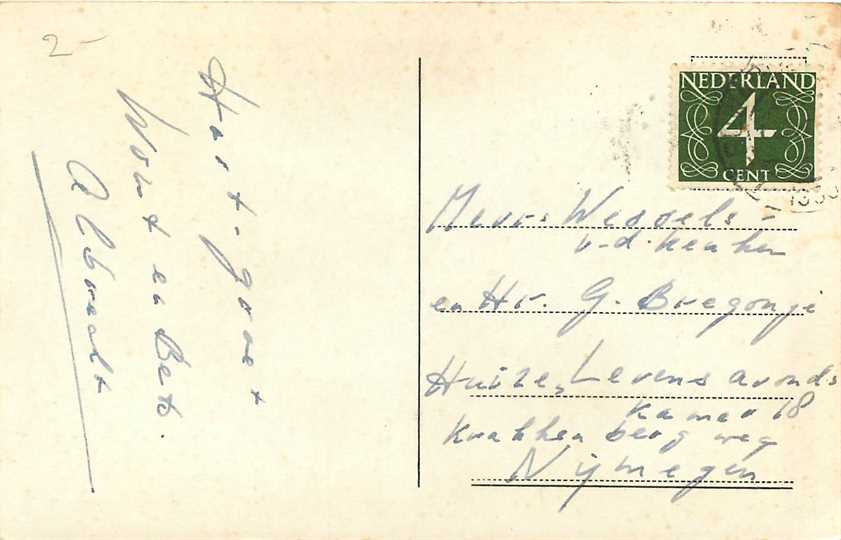 2-
Hart. groet
Wout en Bets.
Albracht
NEDERLAND
4
CENT
Mevr. Wessels -
v-d. Keuken
en Hr. G. Bregonje
Huize, Levens avonds
Kamer 18
Krakken berg weg
Nijmegen